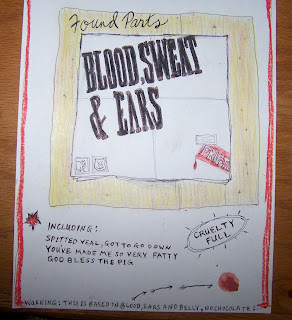 Found Parts
BLOOD, SWEAT
& EARS
INCLUDING:
SPITTED VEAL, GOT TO GO DOWN
YOU'VE MADE ME SO VERY FATTY
GOD BLESS THE PIG
CRUELTY
FULL
WARNING: THIS IS BASED IN BLOOD, EARS AND BELLY, NO CHOCOLATE!